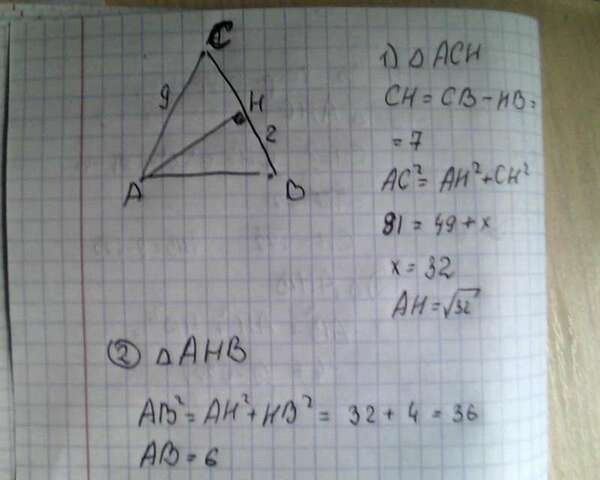 C
9
H
2
A
B
1) △ ACH
CH = CB - HB =
= 7
AC² = AH² + CH²
81 = 49 + x
x = 32
AH = √32
② △ AHB
AB² = AH² + HB² = 32 + 4 = 36
AB = 6